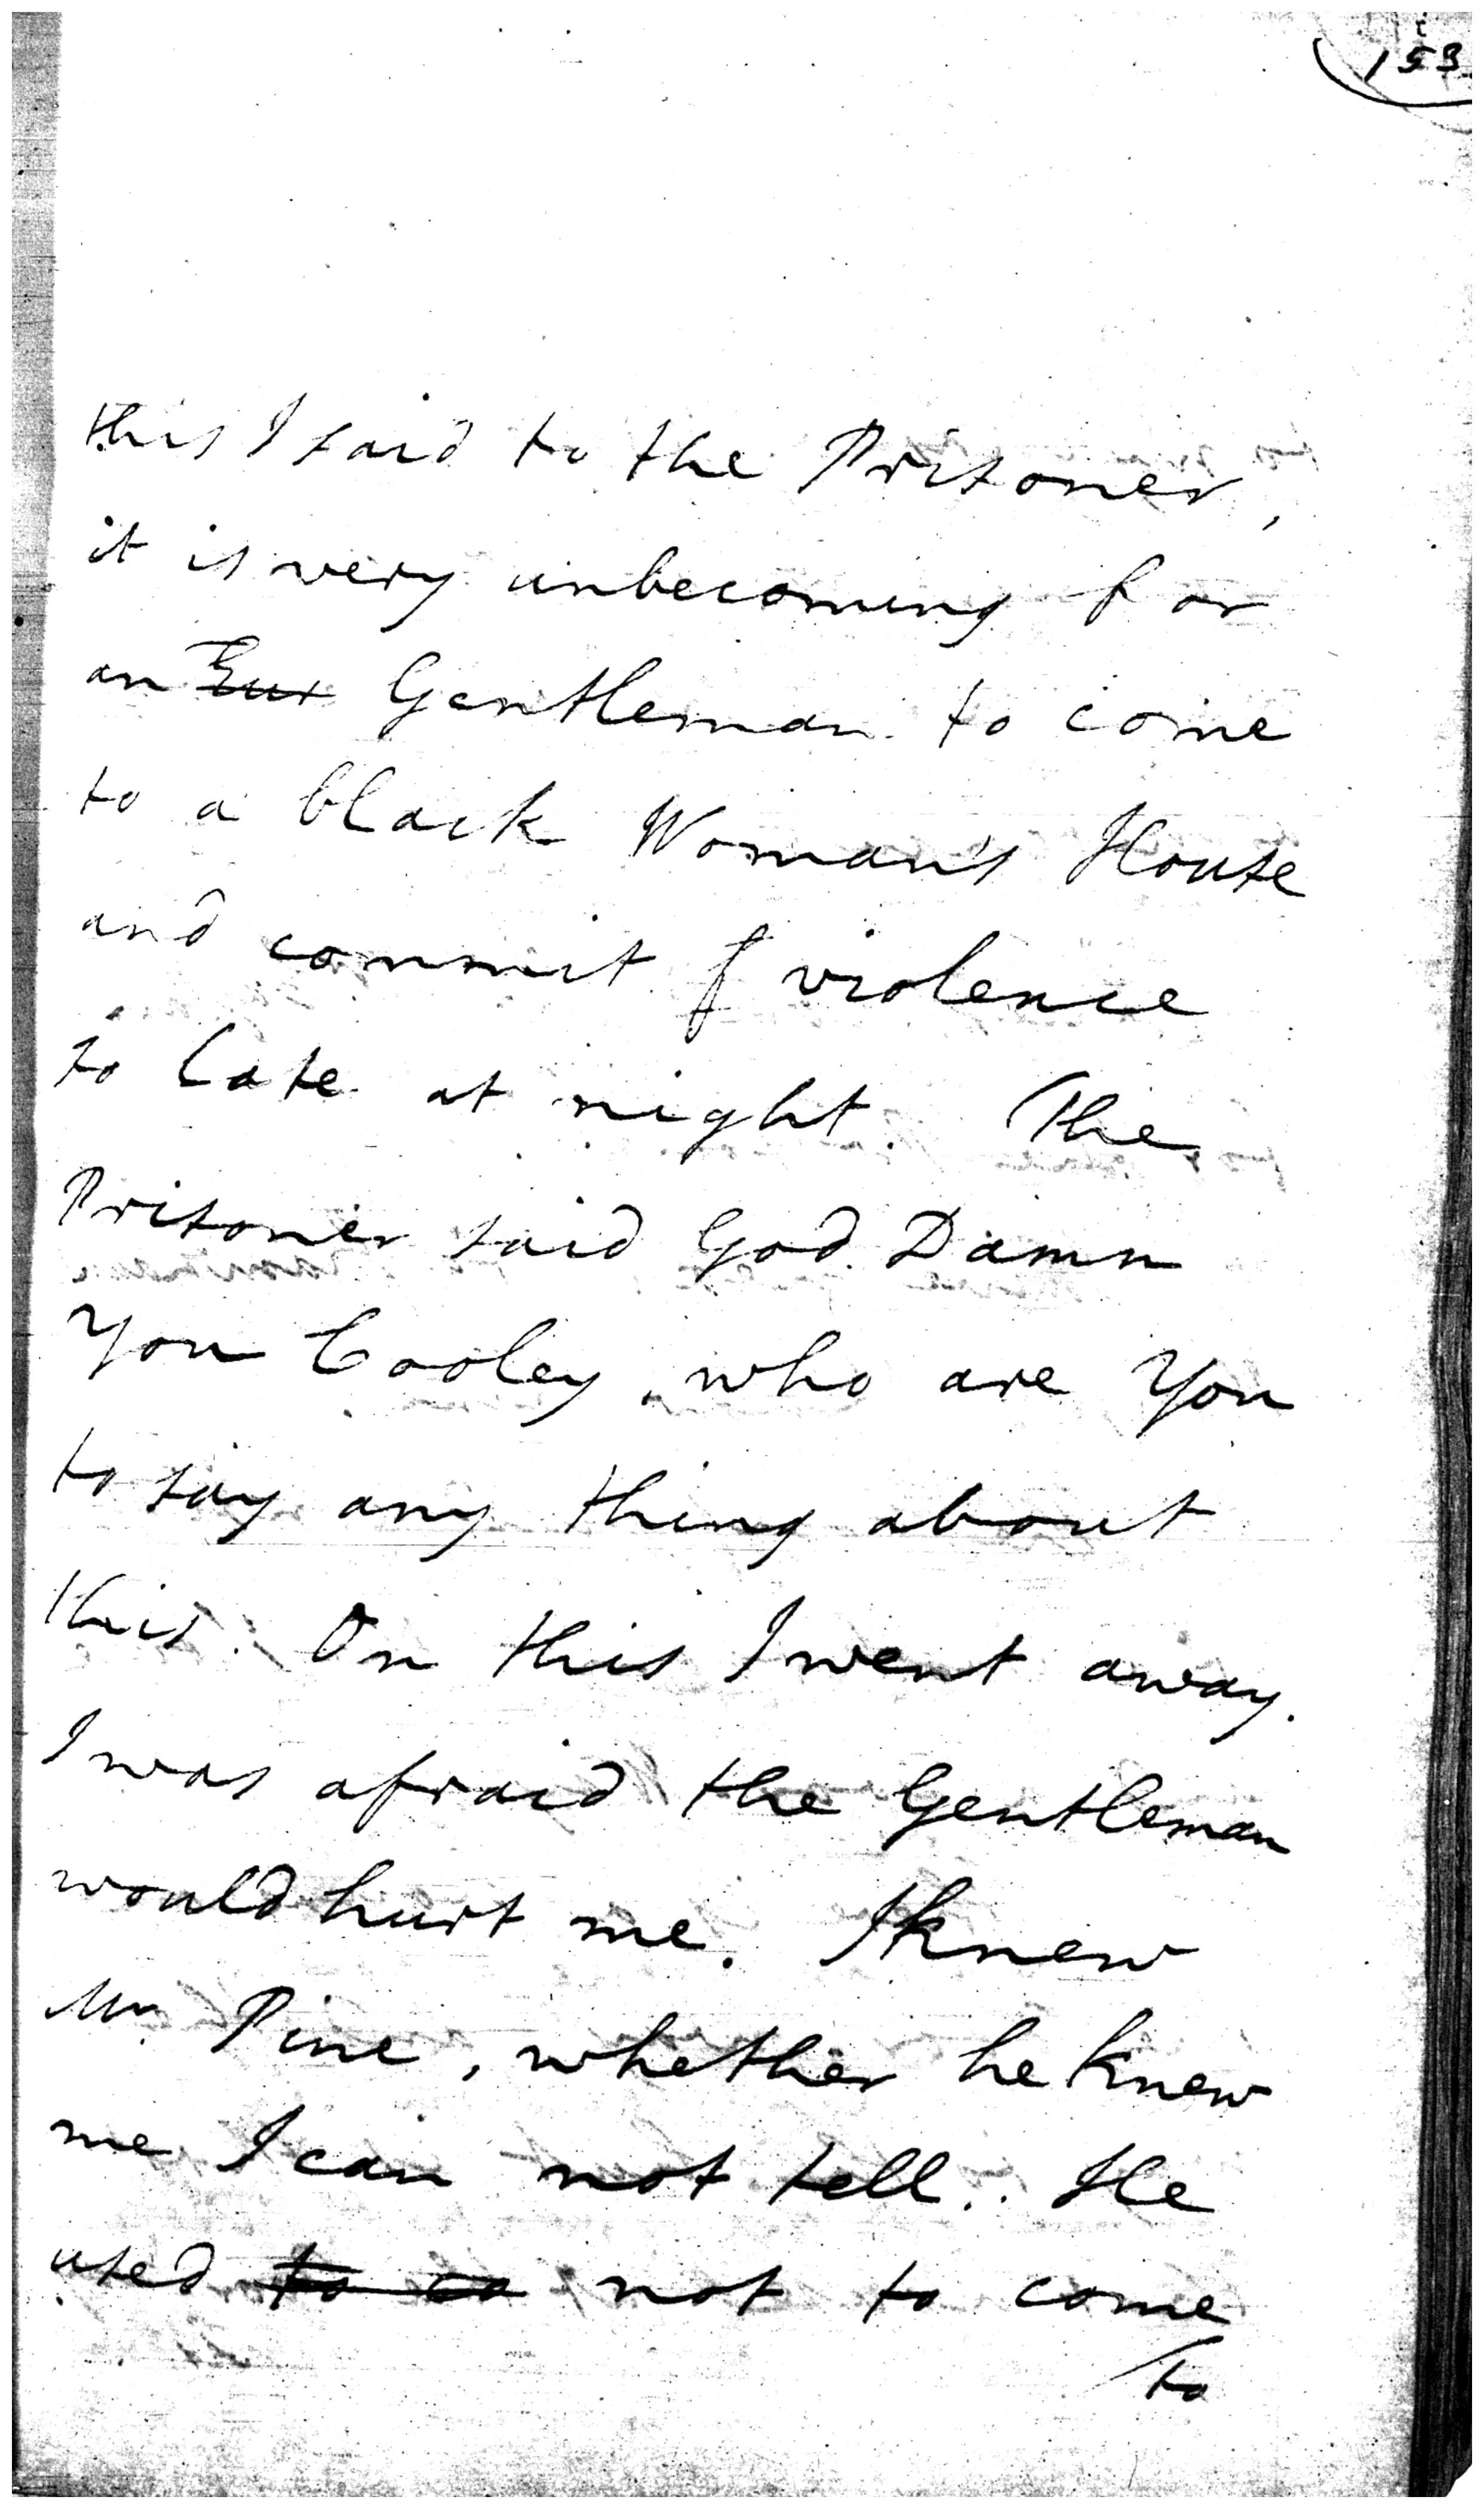 153
this I said to the Prisoner,
it is very unbecoming for
an Eur Gentleman to come
to a black Woman's House
and commit violence
so late at night. The
Prisoner said God Damn
You Cooley, who are You
to say any thing about
this. On this I went away.
I was afraid the Gentleman
would hurt me. I knew
Mr. Pine, whether he knew
me I can not tell. He
used to co not to come
to